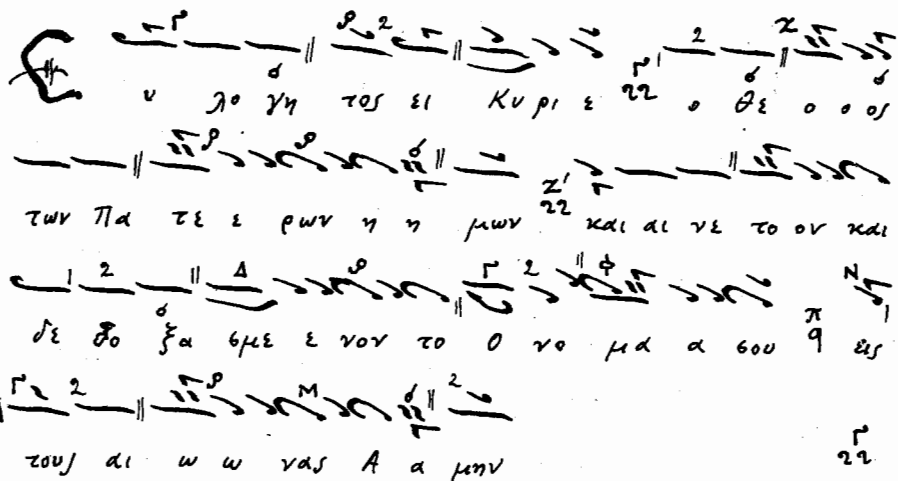 Ευ λο γη τος ει Κυ ρι ε ο θε ο ο ος
των Πα τε ε ρων η η μων και αι νε το ον και
δε δο ξα σμε ε νον το Ο νο μα α σου εις
τους αι ω ω νας Α α μην